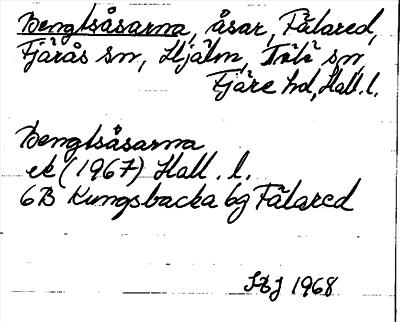 Bengtsåsarna, åsar, Fälared,
Fjärås sn, Hjälm, Tölö sn,
Fjäre hd, Hall. l.
Bengtsåsarna
ek (1967) Hall. l.
6B Kungsbacka bg Fälared
1968